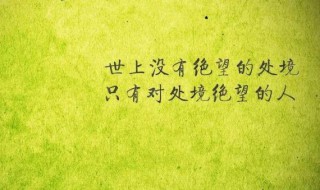 世上没有绝望的处境
只有对处境绝望的人